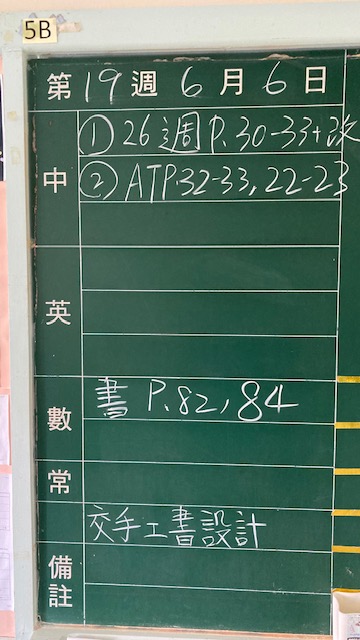 5B
第19週6月6日
中 ① 26週 P.30-33+改
② ATP.32-33, 22-23
英
數 書 P.82, 84
常
交手工書設計
備註